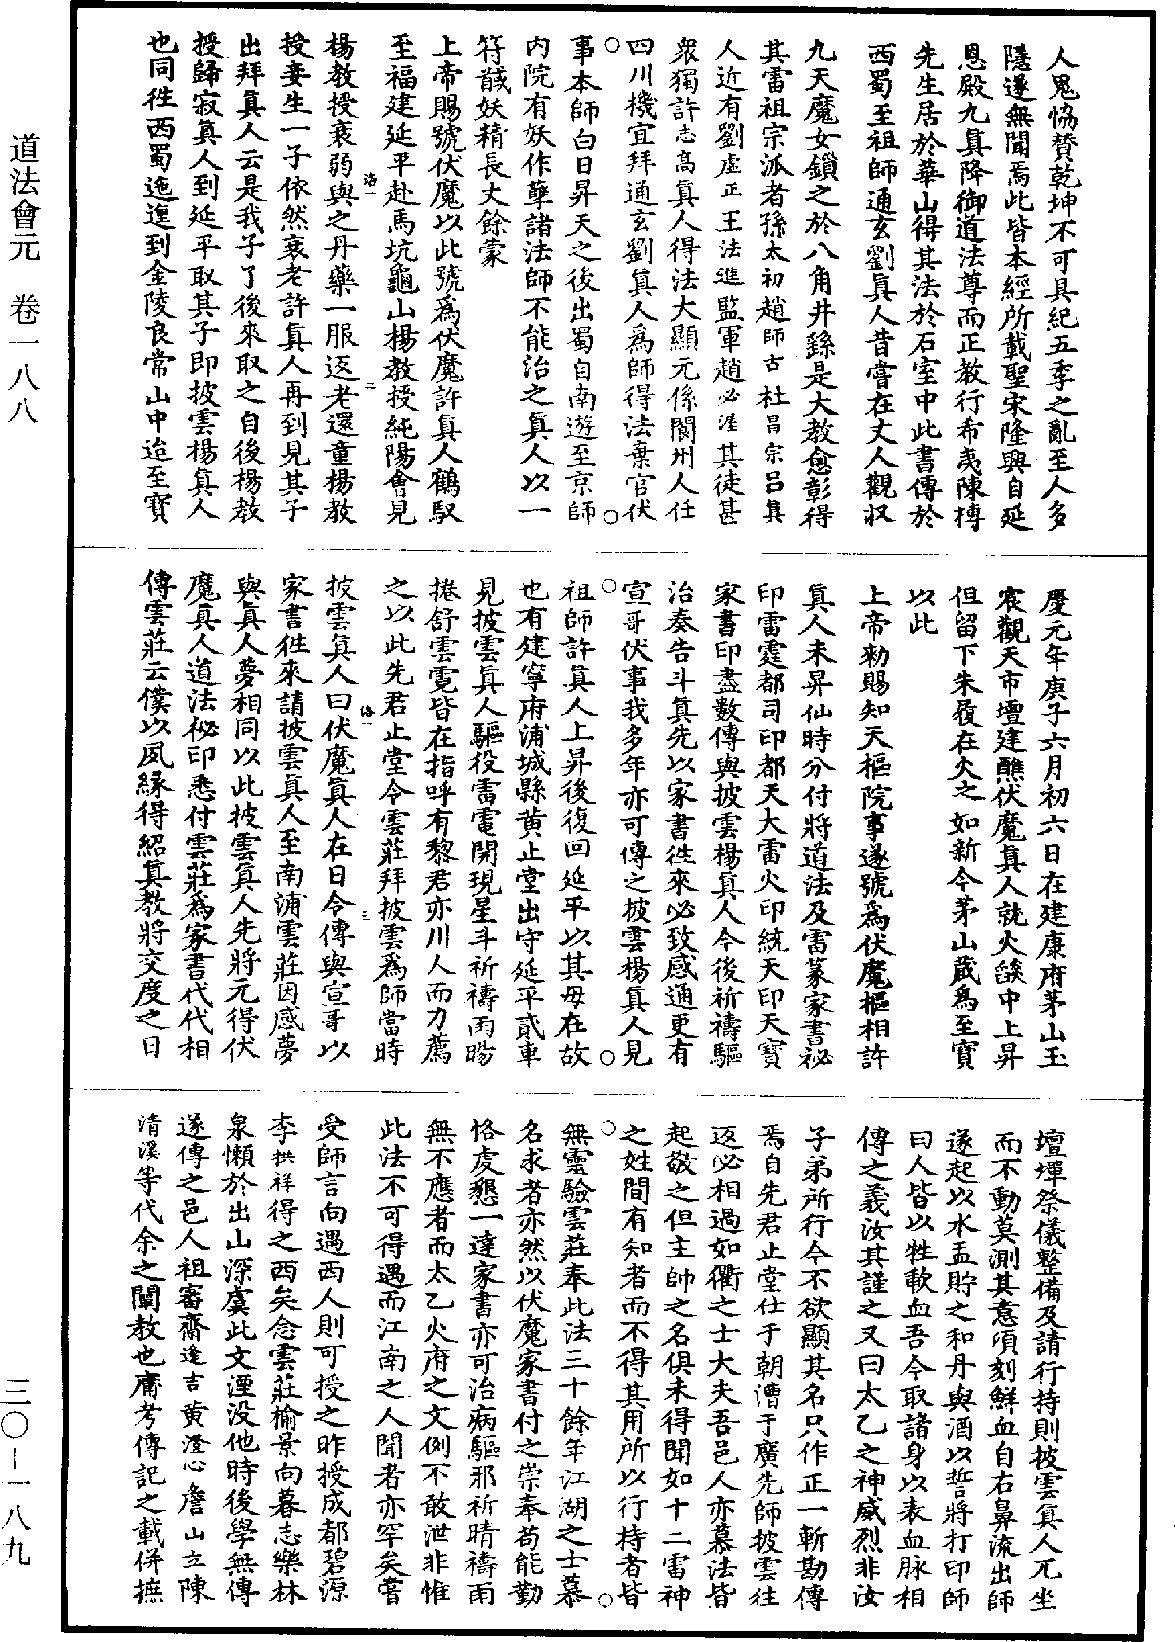 人鬼恊贊乾坤不可具紀五季之亂至人多
隱遂無聞焉此皆本經所載聖宋隆興自延
恩殿九真降御道法尊而正教行希夷陳摶
先生居於華山得其法於石室中此書傳於
西蜀至祖師通玄劉真人昔嘗在丈人觀収
九天魔女鎖之於八角井繇是大教愈彰得
其雷祖宗派者孫太初趙師古杜昌宗吕真
人近有劉虛正王法進監軍趙必滙其徒甚
衆獨許志高真人得法大顯元係閬州人任
四川機宜拜通玄劉真人爲師得法棄官伏
○○
事本師白日昇天之後出蜀自南遊至京師
内院有妖作孽諸法師不能治之真人以一
符馘妖精長丈餘蒙
上帝賜號伏魔以此號爲伏魔許真人鶴馭
至福建延平赴馬坑龜山楊教授純陽會見
楊教授衰弱與之丹藥一服返老還童楊教
授妻生一子依然衰老許真人再到見其子
出拜真人云是我子了後來取之自後楊教
授歸寂真人到延平取其子即披雲楊真人
也同徃西蜀迤邐到金陵良常山中迨至寶
慶元年庚子六月初六日在建康府茅山玉
宸觀天市壇建醮伏魔真人就火燄中上昇
但留下朱履在火之如新今茅山藏爲至寶
以此
上帝勑賜知天樞院事遂號爲伏魔樞相許
真人未昇仙時分付將道法及雷篆家書祕
印雷霆都司印都天大雷火印統天印天寶
家書印盡數傳與披雲楊真人今後祈禱驅
治奏告斗真先以家書徃來必致感通更有
宣哥伏事我多年亦可傳之披雲楊真人見
○○
祖師許真人上昇後復回延平以其母在故
也有建寧府浦城縣黄止堂出守延平貳車
見披雲真人驅役雷電開現星斗祈禱雨暘
捲舒雲霓皆在指呼有黎君亦川人而力薦
之以此先君止堂令雲莊拜披雲爲師當時
披雲真人曰伏魔真人在日令傳與宣哥以
家書徃來請披雲真人至南浦雲莊因感夢
與真人夢相同以此披雲真人先將元得伏
魔真人道法秘印悉付雲莊爲家書代代相
傳雲莊云僕以夙緣得紹真教將交度之日
壇墠祭儀整備及請行持則披雲真人兀坐
而不動莫測其意頃刻鮮血自右鼻流出師
遂起以水盂貯之和丹與酒以誓將打印師
曰人皆以牲歃血吾今取諸身以表血脉相
傳之義汝其謹之又曰太乙之神威烈非汝
子弟所行今不欲顯其名只作正一斬勘傳
焉自先君止堂仕于朝漕于廣先師披雲徃
返必相過如衢之士大夫吾邑人亦慕法皆
起敬之但主帥之名俱未得聞如十二雷神
之姓間有知者而不得其用所以行持者皆
○○
無靈驗雲莊奉此法三十餘年江湖之士慕
名求者亦然以伏魔家書付之崇奉苟能勤
恪虔懇一達家書亦可治病驅邪祈晴禱雨
無不應者而太乙火府之文例不敢泄非惟
此法不可得遇而江南之人聞者亦罕矣嘗
受師言向遇西人則可授之昨授成都碧源
李拱祥得之西矣念雲莊榆景向暮志樂林
泉懶於出山深虞此文湮没他時後學無傳
遂傳之邑人祖審齋逢吉黄澄心詹山立陳
清溪等代余之闡教也庸考傳記之載併摭
道法會元　卷一八八
三〇－一八九